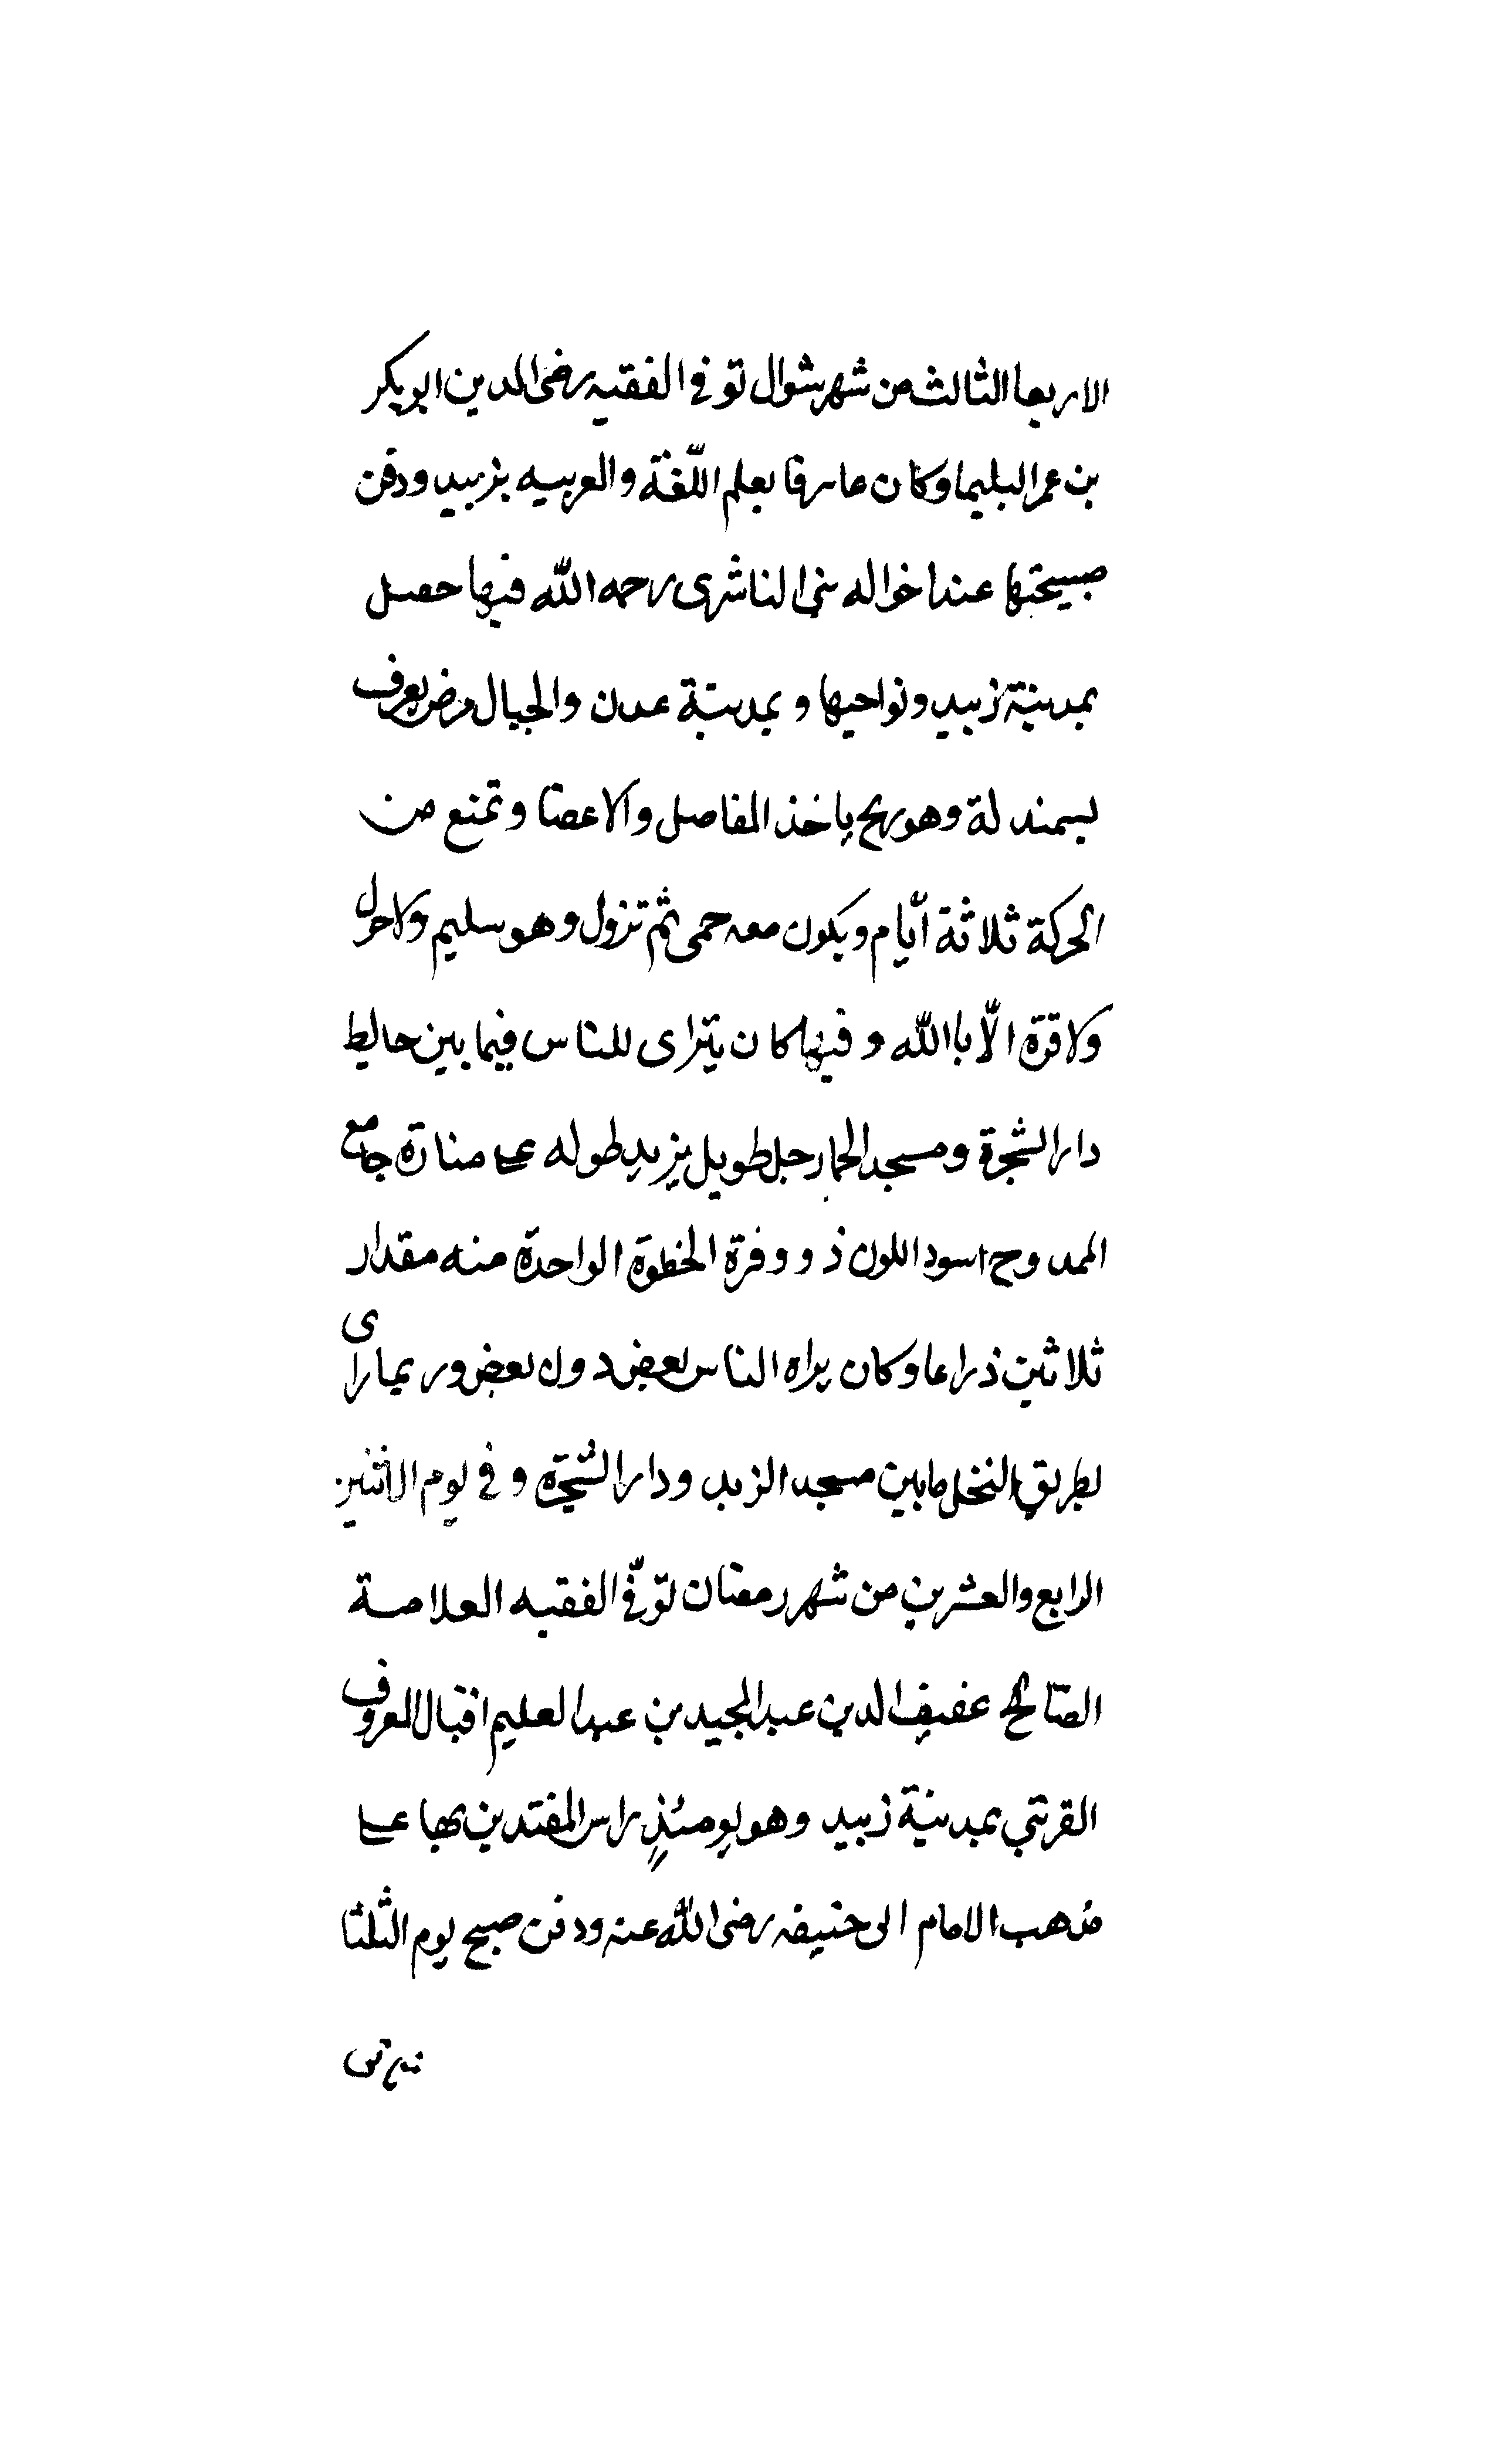 الاربعا الثالث من شهر شوال توفي الفقيه رضى الدين ابو بكر
بن عمر البليما وكان عارفا بعلم اللّغة والعربيه بزبيد ودفن
صبيحتها عند اخواله بني الناشرى رحمه اللّه فيها حصل
بمدينة زبيد ونواحيها و بمدينة عدن والجبال مرض يعرف
بسمندلة وهو ريح ياخذ المفاصل والاعضا وتمنع من
الحركة ثلاثة آيّام ويكون معه حمى ثم تزول وهو سليم ولاحول
ولاقوة الّا باللّه وفيها كان يترٰاى للناس فيما بين حاليط
دار الشجرة ومسجد الحمار رجل طويل يزيد طوله على منارة جامع
الممدوح اسود اللون ذو وفرة الخطوة الواحدة منه مقدار
ثلاثين ذراعا وكان يراه الناس بعض دون بعض وربما راى
بطريق النخل مابين مسجد الزيد ودار الشجرة وفي يوم الاثنين
الرابع والعشرين من شهر رمضان توفّي الفقيه العلامة
الصّالح عفيف الدين عبد المجيد بن عبد العليم اقبال المعروف
القرتبي بمدينة زبيد وهو يومئذٍ راس المفتدين بها على
مذهب الامام ابى حنيفه رضى اللّه عنه ودفن صبح يوم الثلثا